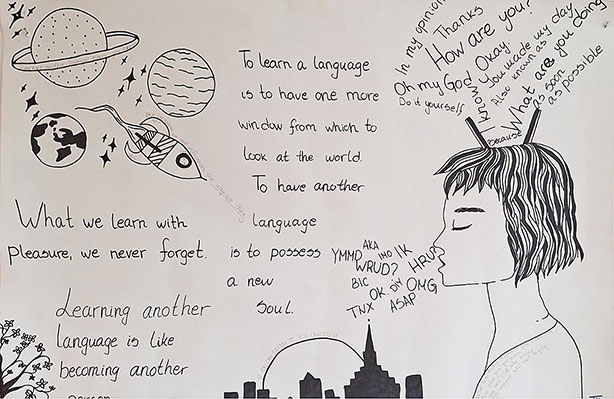 To learn a language
is to have one more
window from which to
look at the world.
To have another
language
is to possess
a new
soul.
What we learn with
pleasure, we never forget.
Learning another
language is like
becoming another
person
In my opinion
Thanks
How are you?
Oh my God
Okay
You made my day
Do it yourself
know
Also known as
What are you doing
because
as soon
as possible
YMMD
AKA
IMO
IK
WRUD?
HRU?
BIC
OK
DIY
OMG
TNX
ASAP